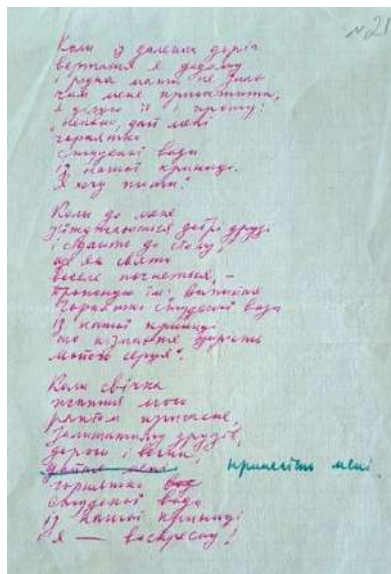 №21
Коли із далеких доріг
вертаюся я додому
і рідна мати не знає
чим мене пригостити,
я дякую їй і прошу:
"Ненько, дай мені
горнятко
студеної води
із нашої криниці.
Я хочу пити."
Коли до мене
з'їжджаються добрі друзі
і сядають до столу,
ще як свято
веселе почнеться, –
пропоную їм: випийте
горнятко студеної води
із нашої криниці
то пізнаєте щирість
мойого серця".
Коли свічка
життя мого
раптом пригасне,
друзів,
дорогі і вечні,
Дайте мені принесіть мені
горнятко вод
студеної води
із нашої криниці
і я — воскресну!